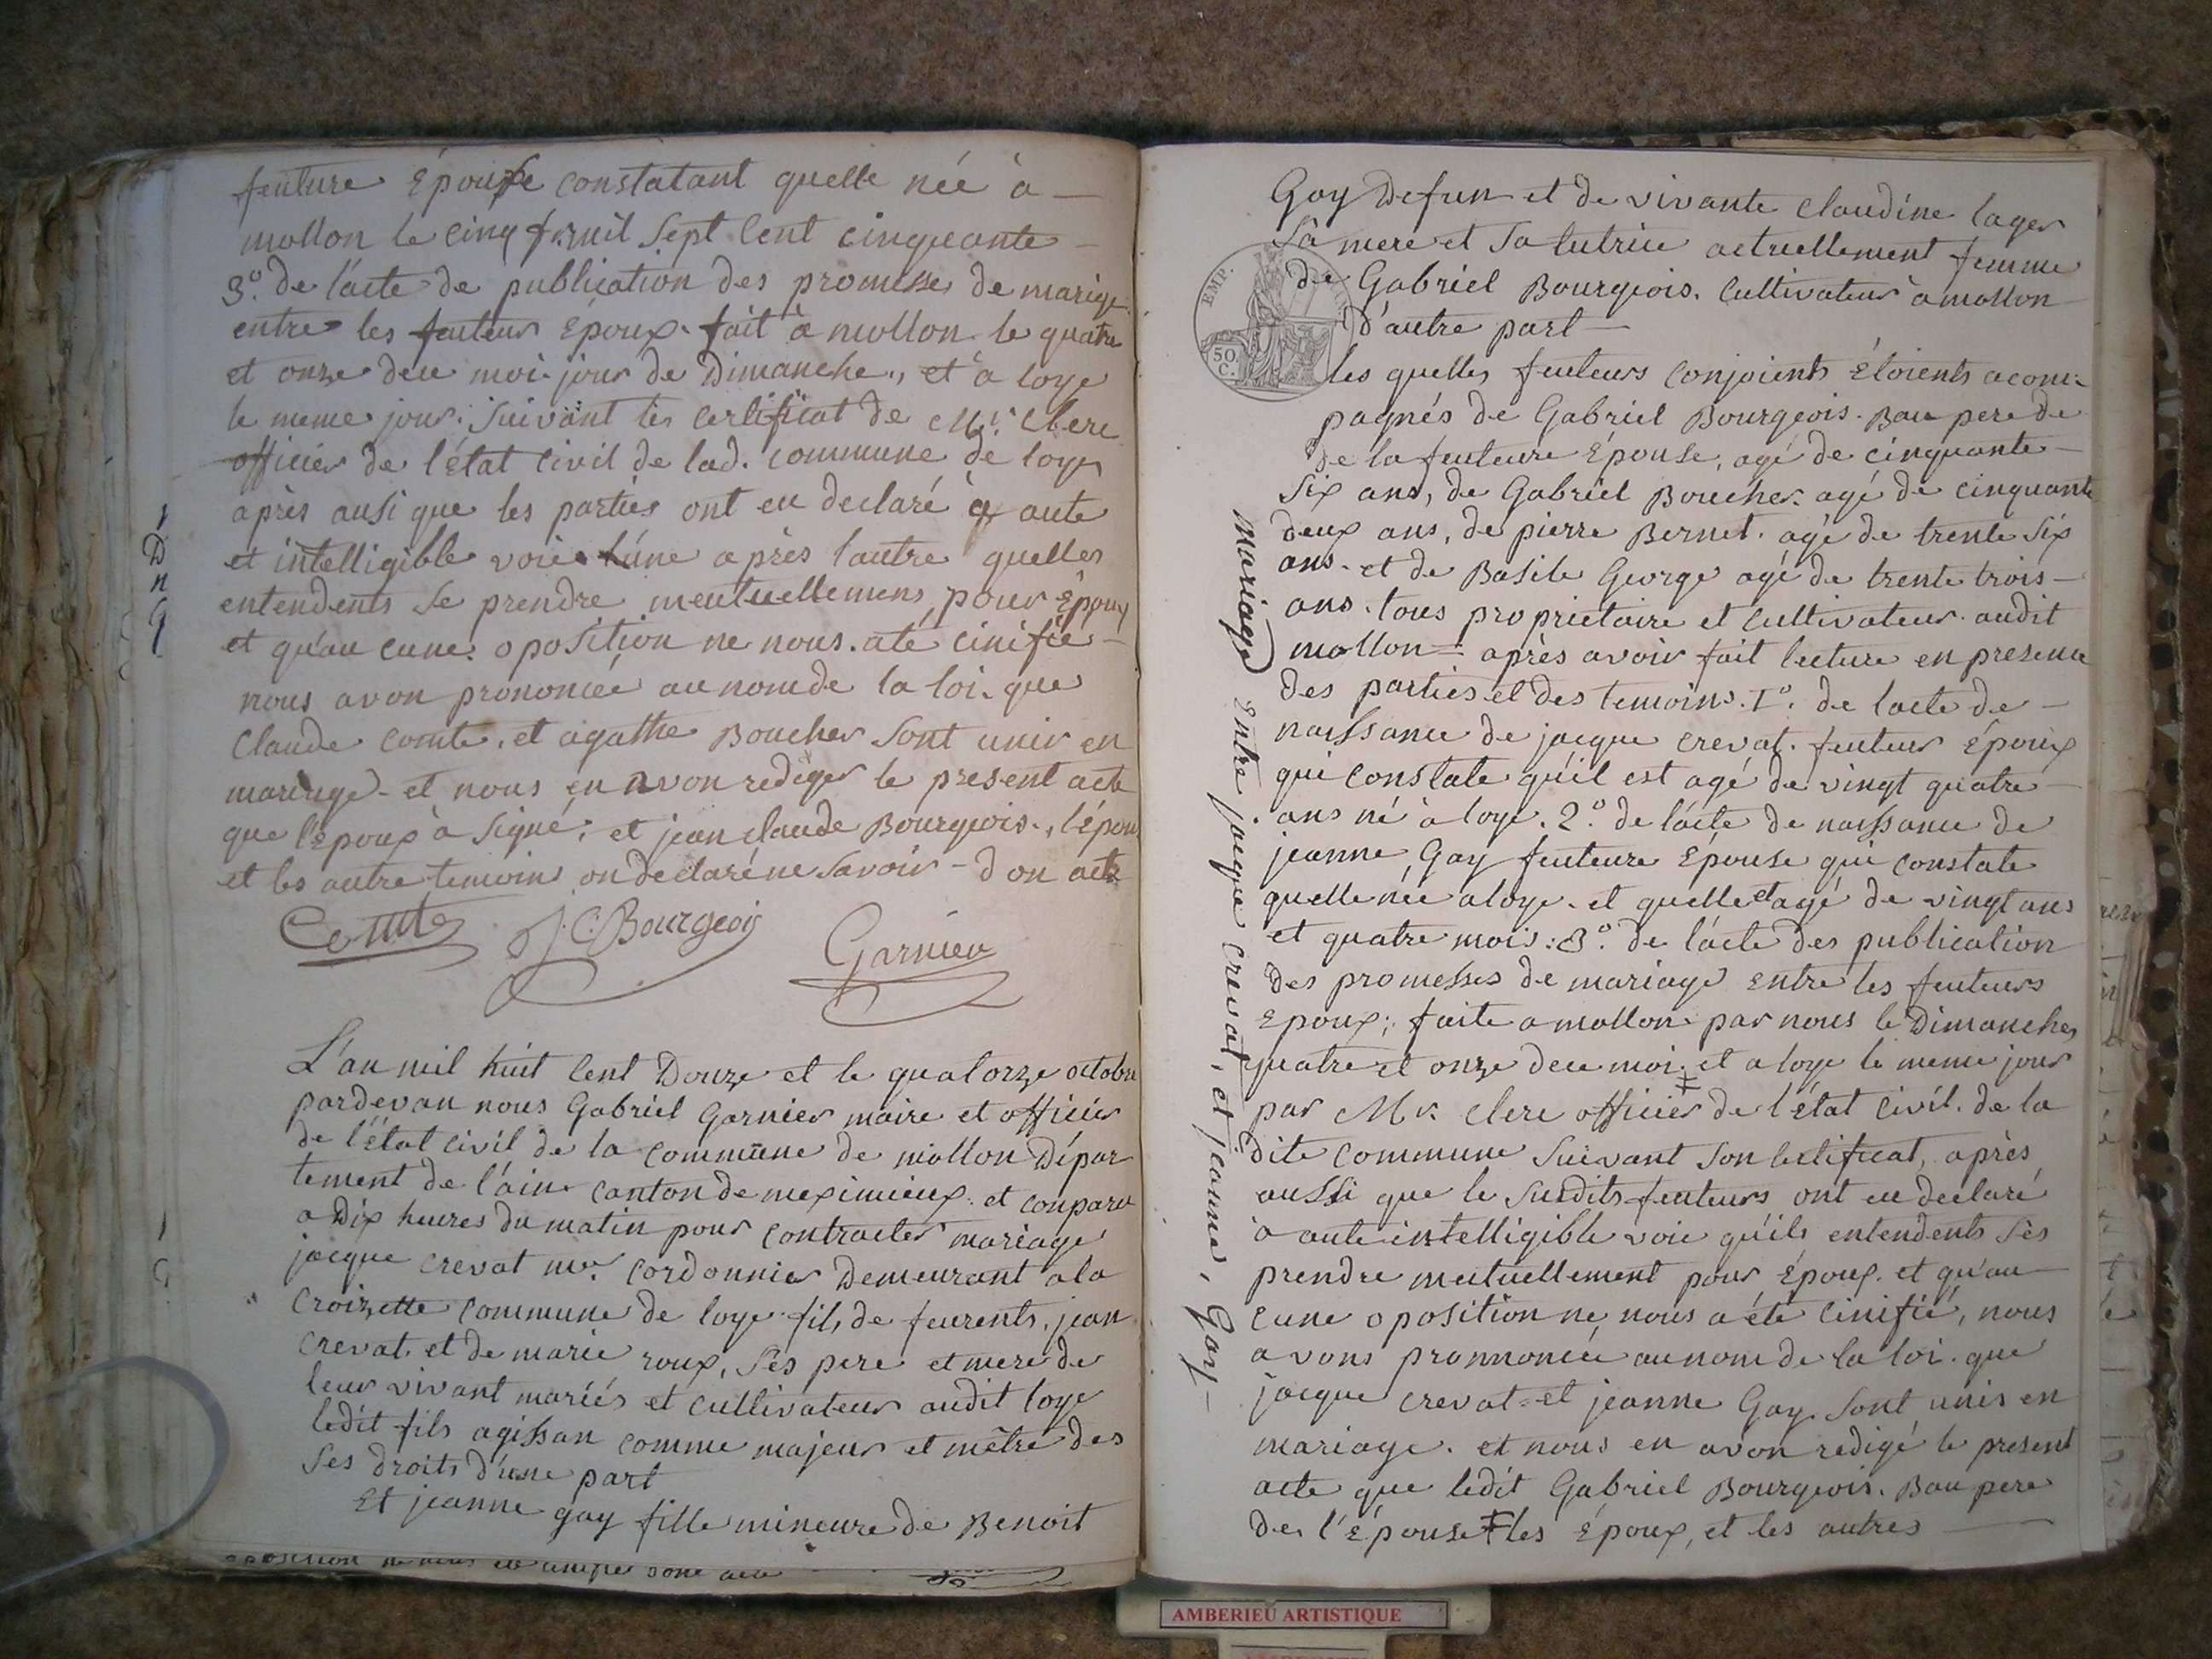 feuture Épouse constatant quelle née à
mollon le cinq mil Sept Cent cinquante
3.º de l'acte de publication des promesses de mariage
entre les feuteurs époux. fait à mollon le quatre
et onze deu moi jour de Dimanche, et à loye
le meme jour. Suivant les certificat de Mr. Clerc
officier de l'état Civil de lad. commune de loye
après ausi que les parties ont eu declaré à aute
et intelligible voie l'une après l'autre quelles
entendents Se prendre meutuellemens pour Époux
et qu'au cune oposition ne nous até cinifié
nous avon prononcée au nom de la loi. que
Claude Comte, et agathe Boucher Sont unir en
mariage et nous en avon rediger le present acte
que l'époux à Signé, et jean claude Bourgeois, l'épou
et les autre temoins on declaré ne Savoir - don acte
Comte J. C. Bourgeois
Garnier
L'an mil huit Cent Douze et le quatorze octobre
pardevan nous Gabriel Garnier maire et officier
de l'état Civil de la Commune de mollon Dépar
tement de l'ain canton de meximieux et conparu
a Dix heures du matin pour Contracter mariage
jacque crevat mr. Cordonnier Demeurant a la
Croizette Commune de loye fils de feurents, jean
crevat. et de marie roux, Ses pere et mere de
leur vivant mariés et Cultivateur audit loye
ledit fils agissan comme majeur et mêtre des
Ses droits d'une part
Et jeanne gay fille mineure de Benoit
Gay Defun et de vivante Claudine lager
Sa mere et Sa tutrice actuellement femme
de Gabriel Bourgeois. Cultivateur a mollon
d'autre part
EMP.
50 C.
les quelles feuteurs Conjoients Étoients acom
pagnés de Gabriel Bourgeois. Bau pere de
de la feuteure Épouse, agé de cinquante
Six ans, de Gabriel Boucher agé de cinquante
deux ans, de pierre Bernet. agé de trente Six
ans. et de Basile George agé de trente trois
ans. tous proprietaire et Cultivateur audit
mollon = après avoir fait lecture en presence
des parties et des temoins. 1º. de l'acte de
naissance de jacque crevat. feuteur Époux
qui constate qu'il est agé de vingt quatre
ans né à loye. 2.º de l'acte de naissance de
jeanne Gay feuteure Épouse qui constate
quelle née a loye. et quelle et agé de vingt ans
et quatre mois: 3.º de l'acte des publication
des promesses de mariage entre les feuteurs
Epoux; faite a mollon par nous le Dimanches
quatre et onze deu moi. et a loye le meme jour
par Mr. Clerc officier de l'état Civil. de la
dite Commune Suivant Son Cetificat, après
aussi que le Sudits feuteurs ont eu declaré
à aute intelligible voie qu'ils entendents Ses
prendre meutuellement pour Époux. et qu'au
cune oposition ne nous a été Cinifié, nous
avons pronnoncée au nom de la loi. que
jacque crevat et jeanne Gay Sont unis en
mariage. et nous en avon redigé le present
acte que ledit Gabriel Bourgeois. Bau pere
de l'épouse les époux, et les autres
Mariage entre jacque crevat, et jeanne, Gay
AMBERIEU ARTISTIQUE